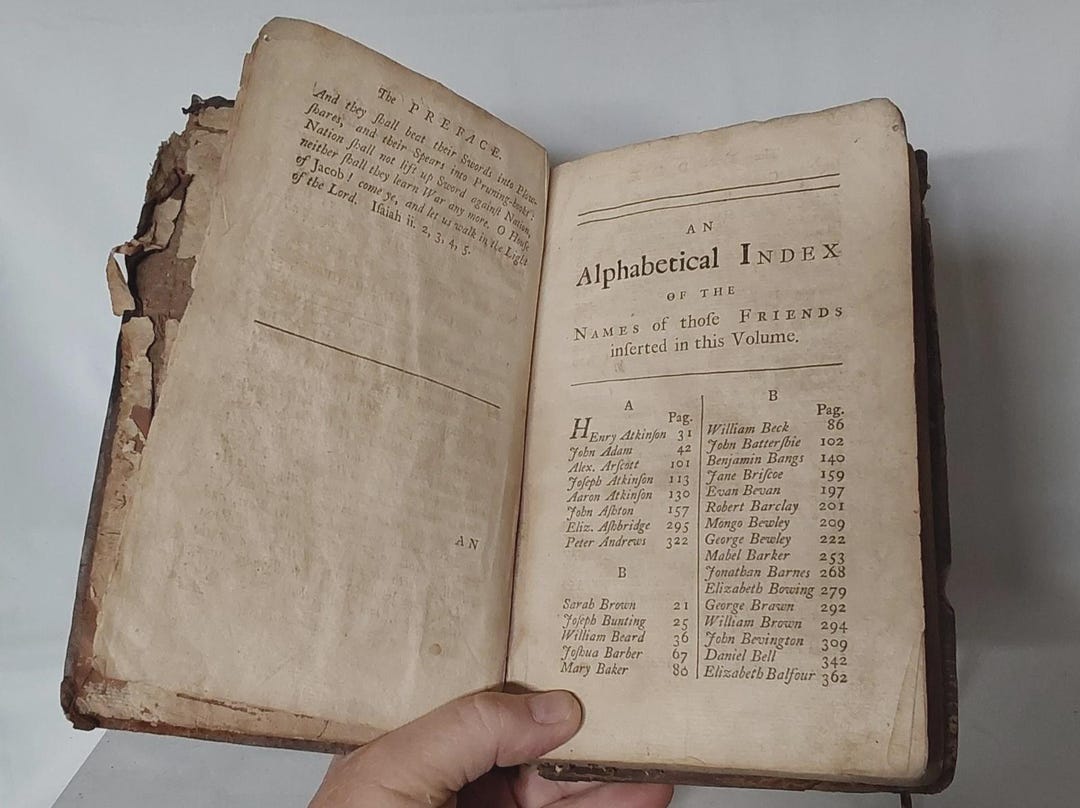 The PREFACE.
And they ſhall beat their Swords into Plow-
ſhares, and their Spears into Pruning-hooks:
Nation ſhall not lift up Sword againſt Nation,
neither ſhall they learn War any more. O Houſe
of Jacob! come ye, and let us walk in the Light
of the Lord. Iſaiah ii. 2, 3, 4, 5.
AN
AN
Alphabetical INDEX
OF THE
NAMES of thoſe FRIENDS
inſerted in this Volume.
A
Pag.
HEnry Atkinſon 31
John Adam 42
Alex. Arſcott 101
Joſeph Atkinſon 113
Aaron Atkinſon 130
John Aſhton 157
Eliz. Aſhbridge 295
Peter Andrews 322
B
Sarah Brown 21
Joſeph Bunting 25
William Beard 36
Joſhua Barber 67
Mary Baker 80
B
Pag.
William Beck 86
John Batterſbie 102
Benjamin Bangs 140
Jane Briſcoe 159
Evan Bevan 197
Robert Barclay 201
Mongo Bewley 209
George Bewley 222
Mabel Barker 253
Jonathan Barnes 268
Elizabeth Bowing 279
George Brawn 292
William Brown 294
John Bevington 309
Daniel Bell 342
Elizabeth Balfour 362